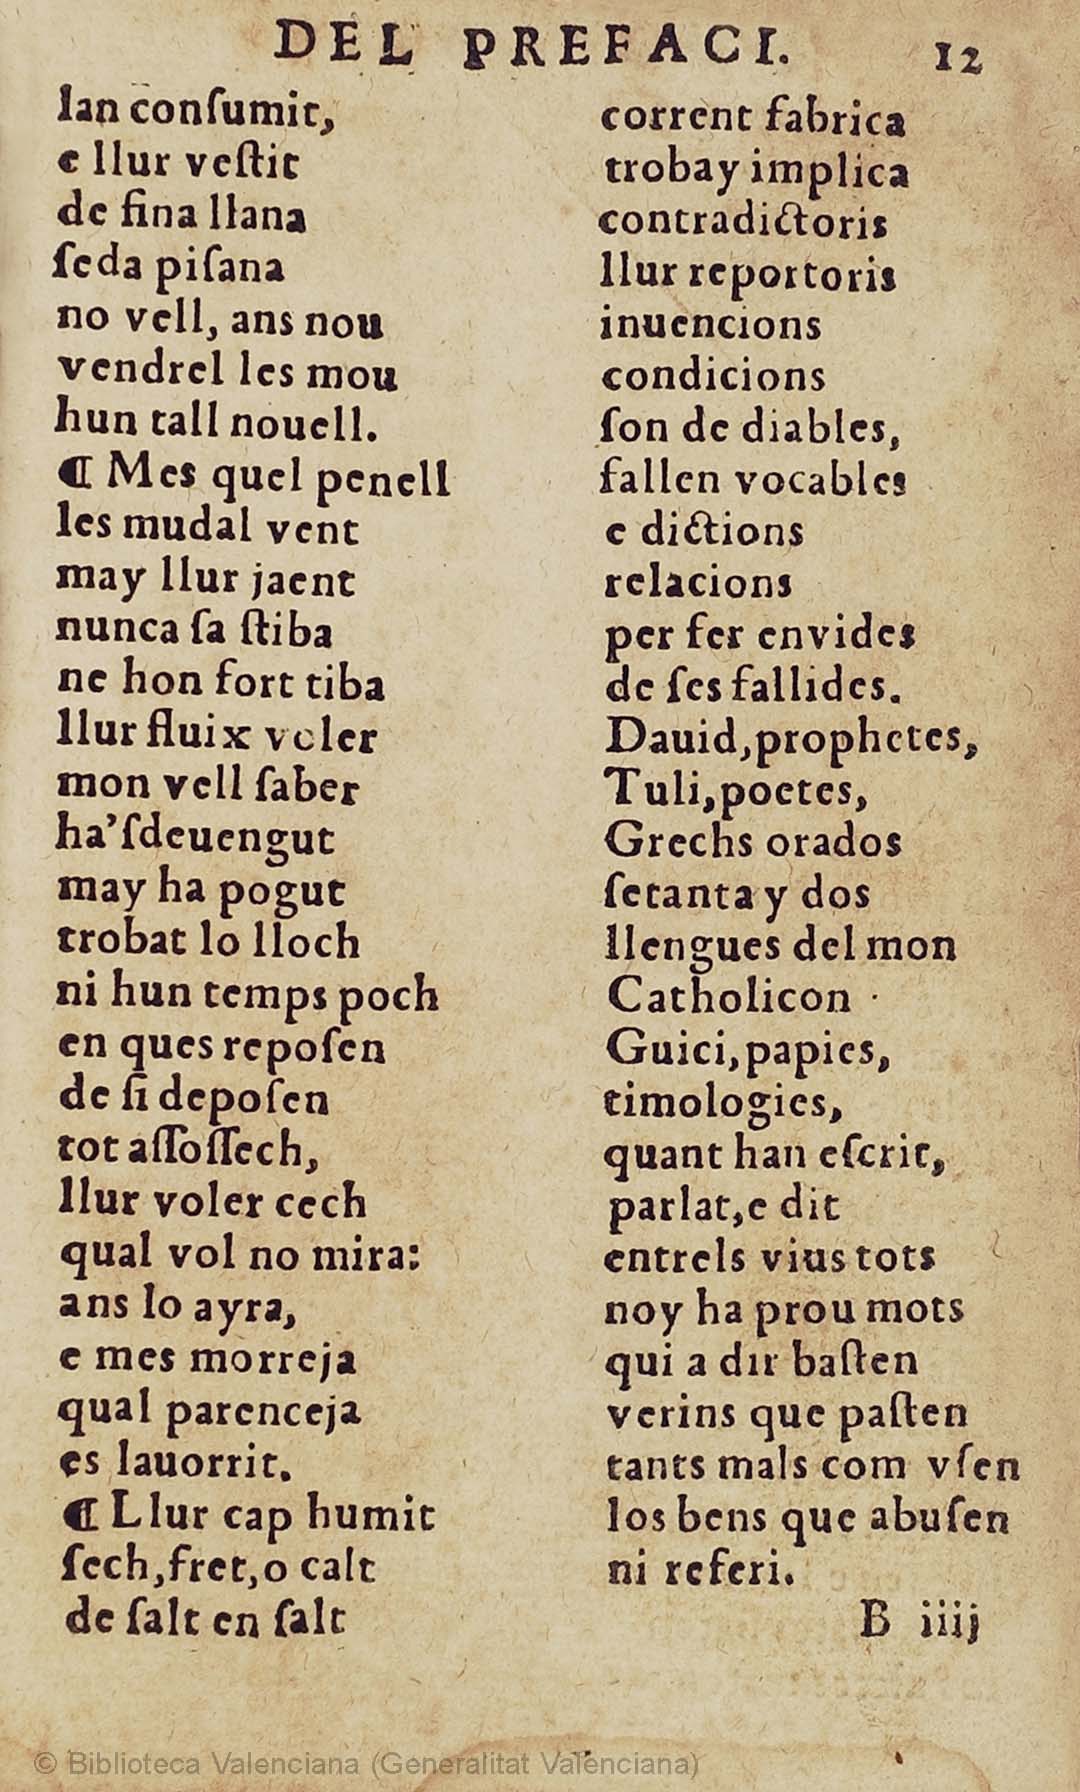 DEL PREFACI. 12
lan conſumit,
e llur veſtit
de fina llana
ſeda piſana
no vell, ans nou
vendrel les mou
hun tall nouell.
¶ Mes quel penell
les mudal vent
may llur jaent
nunca ſa ſtiba
ne hon fort tiba
llur fluix voler
mon vell ſaber
ha'ſdeuengut
may ha pogut
trobat lo lloch
ni hun temps poch
en ques repoſen
de ſi depoſen
tot aſſoſſech,
llur voler cech
qual vol no mira:
ans lo ayra,
e mes morreja
qual parenceja
es lauorrit.
¶ Llur cap humit
ſech,fret,o calt
de ſalt en ſalt
corrent fabrica
trobay implica
contradictoris
llur reportoris
inuencions
condicions
ſon de diables,
fallen vocables
e dictions
relacions
per fer envides
de ſes fallides.
Dauid,prophetes,
Tuli,poetes,
Grechs orados
ſetanta y dos
llengues del mon
Catholicon
Guici,papies,
timologies,
quant han eſcrit,
parlat,e dit
entrels vius tots
noy ha prou mots
qui a dir baſten
verins que paſten
tants mals com vſen
los bens que abuſen
ni referi.
B iiij
© Biblioteca Valenciana (Generalitat Valenciana)